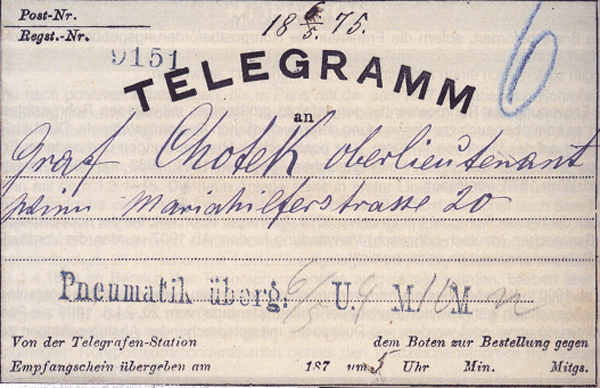 Post-Nr.
18 6/5. 75.
Regst.-Nr.
9151
TELEGRAMM
6
an
Graf Chotek Oberlieutenant
Wien Mariahilferstrasse 20
Pneumatik überg: 6/5 U. 9 M. 10 M.
Von der Telegrafen-Station dem Boten zur Bestellung gegen
Empfangschein übergeben am 187 um 5 Uhr Min. Mitgs.